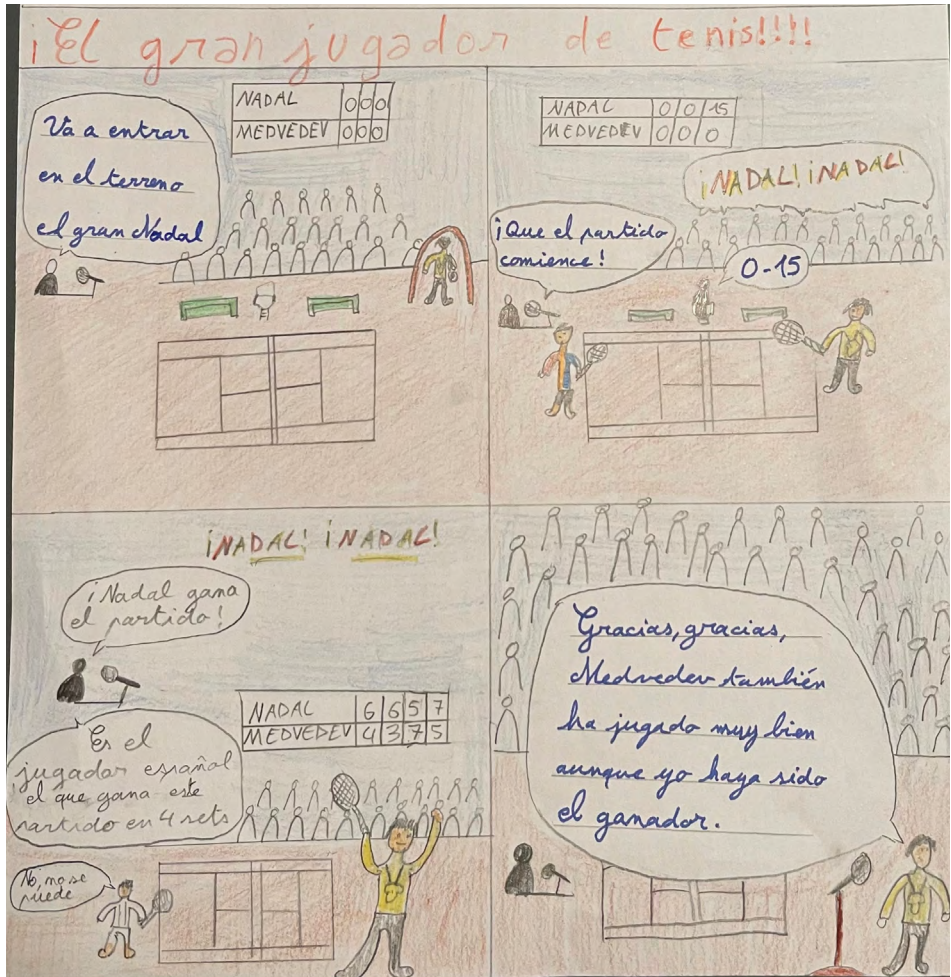 ¡El gran jugador de tenis!!!!
NADAL 0 0 0
MEDVEDEV 0 0 0
Va a entrar
en el terreno
el gran Nadal
NADAL 0 0 15
MEDVEDEV 0 0 0
¡NADAL! ¡NADAL!
¡Que el partido
comience!
0-15
¡NADAL! ¡NADAL!
¡Nadal gana
el partido!
NADAL 6 6 5 7
MEDVEDEV 4 3 7 5
Es el
jugador español
el que gana este
partido en 4 sets
No, no se
puede
Gracias, gracias,
Medvedev también
ha jugado muy bien
aunque yo haya sido
el ganador.